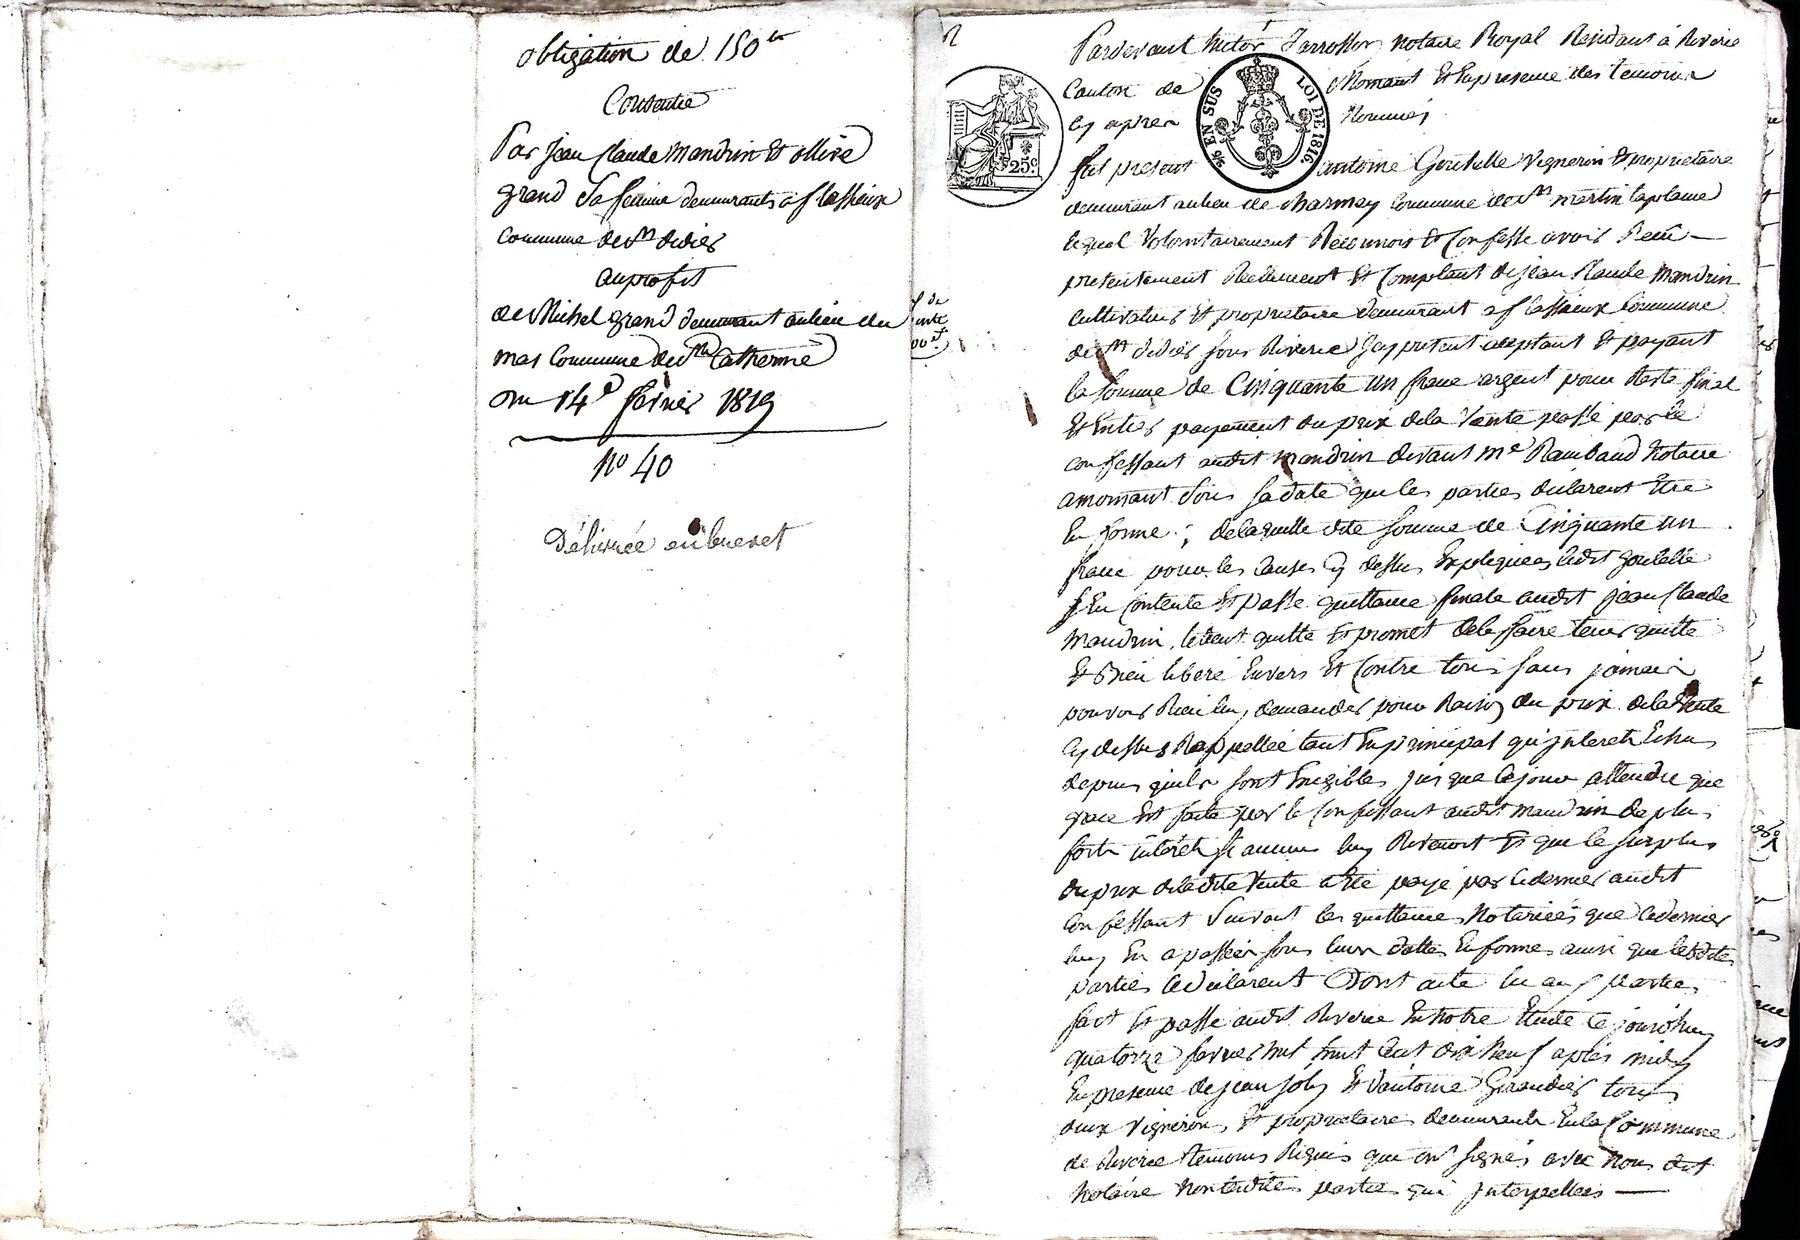 obligation de 150 tt
Consentie
Par jean Claude Mandrin Et ollive
grand Sa femme demeurants a flassieux
Commune de St didier
au profit
de Michel grand demeurant au lieu du
mas Commune de Ste Catherine
du 14e fevrier 1819
No 40
Délivrée en brevet
Pardevant notaire Royal Résidant à Riverie
Canton de Mornant Et En presence des temoins
cy apres Nommés
25c.
96 EN SUS LOI DE 1816.
fut present antoine Goutelle vigneron Et proprietaire
demeurant au lieu de Charmay Commune de St martin laplaine
lequel Volontairement Reconnois Et Confesse avoir Recu
presentement Reellement Et Comptant de jean Claude Mandrin
Cultivateur Et proprietaire demeurant a flassieux Commune
de St didier sous Riverie Icy present aceptant Et payant
la Somme de Cinquante un franc argent pour Reste final
Et Entier payement du prix de la Vente passé par le
confessant audit Mandrin devant Me Raimbaud Notaire
a mornant Sous Sa date que les parties déclarent Etre
En forme ; de laquelle dite Somme de Cinquante un
franc pour les Causes cy dessus Expliquées ledit goutelle
S'En Contente Et passe quittance finale audit jean Claude
Mandrin, le tient quitte Et promet de le faire tenir quitte
Et Bien libéré Envers Et Contre tous Sans jamais
pouvoir Rien luy demander pour Raison du prix de la Vente
cy dessus Rappellée tant En principal qu'jnterets Echus
depuis qu'ils sont Exigibles jusque Ce jour attendu que
grace Est faite par le Confessant audit Mandrin de plus
forts intérets Si aucuns luy Revenoit Et que le surplus
du prix de ladite Vente a Eté payé par ce dernier audit
Confessant Suivant les quittances Notariées que ce dernier
luy En a passées sous leurs dattes En formes ainsi que lesdites
parties le déclarent Dont acte lu aux parties
fait Et passé audit Riverie En notre Etude Ce jourdhuy
quatorze fevrier mil huit Cent dix Neuf après midy
En presence de jean joly Et d'antoine Giraudier tous
deux vignerons Et proprietaires demeurants En la Commune
de Riverie temoins Requis qui ont signés avec Nous dit
Notaire Non lesdites parties qui jnterpellees